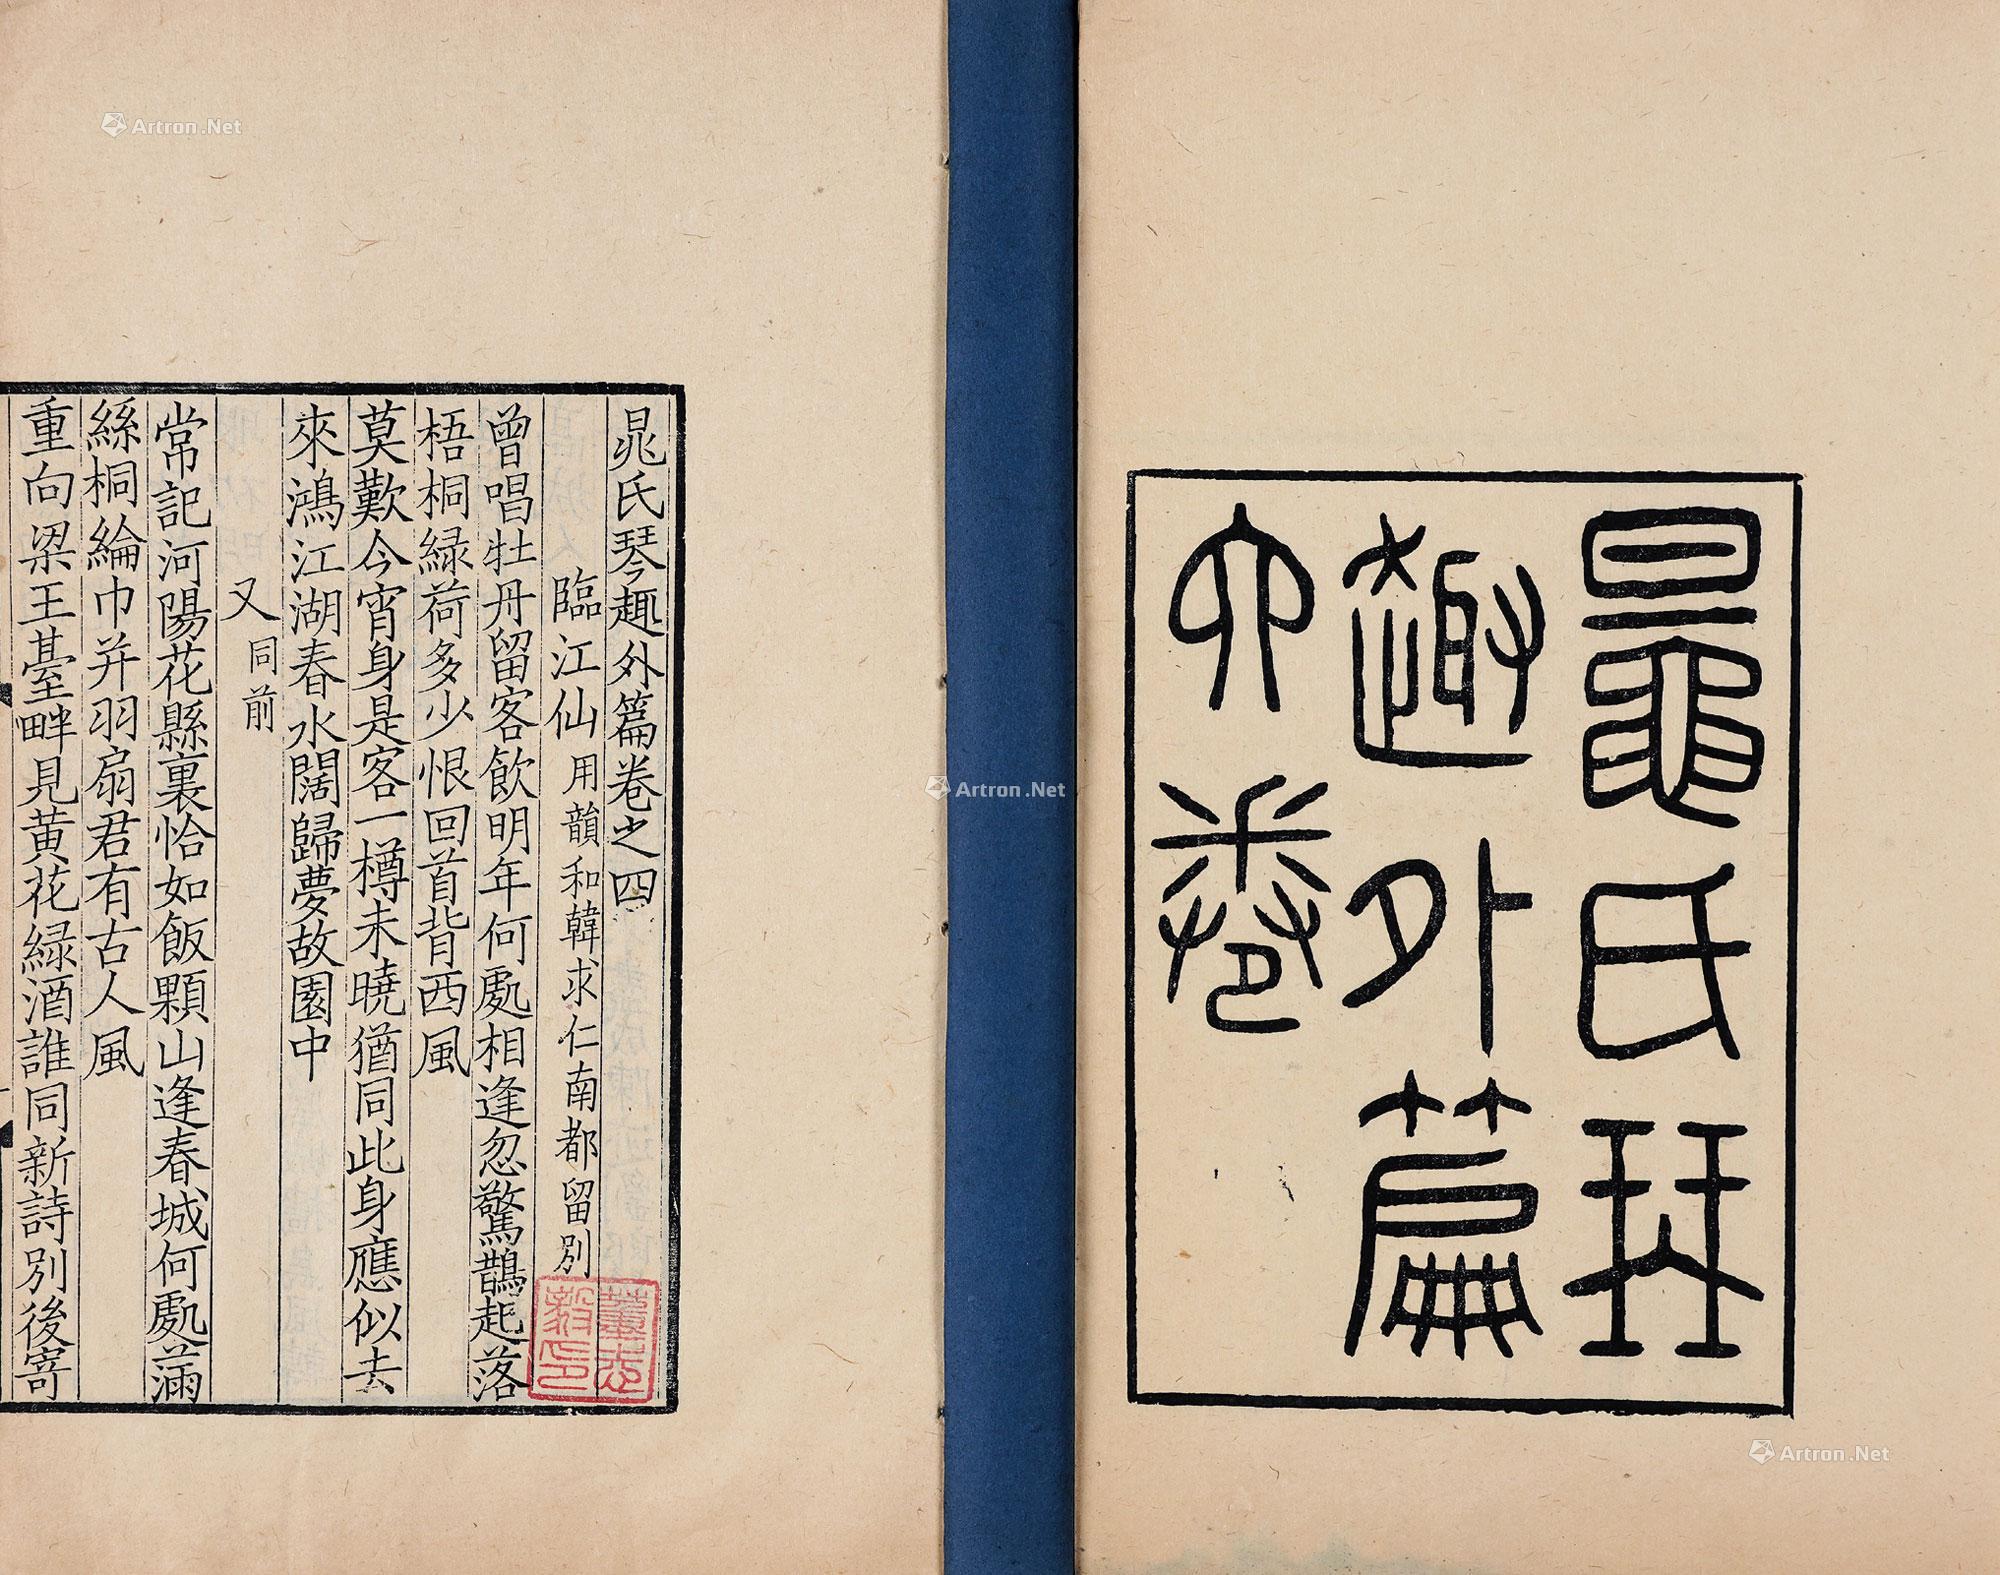 鼂氏琹
趣外篇
六卷
晁氏琴趣外篇卷之四
臨江仙 用韻和韓求仁南都留別
曾唱牡丹留客飲明年何處相逢忽驚鵲起落
梧桐緑荷多少恨回首背西風
莫歎今宵身是客一樽未曉猶同此身應似去
來鴻江湖春水闊歸夢故園中
又 同前
常記河陽花縣裏恰如飯顆山逢春城何處滿
絲桐綸巾并羽扇君有古人風
重向梁王臺畔見黄花緑酒誰同新詩別後寄
董志
毅印
Artron.Net
Artron.Net
Artron.Net